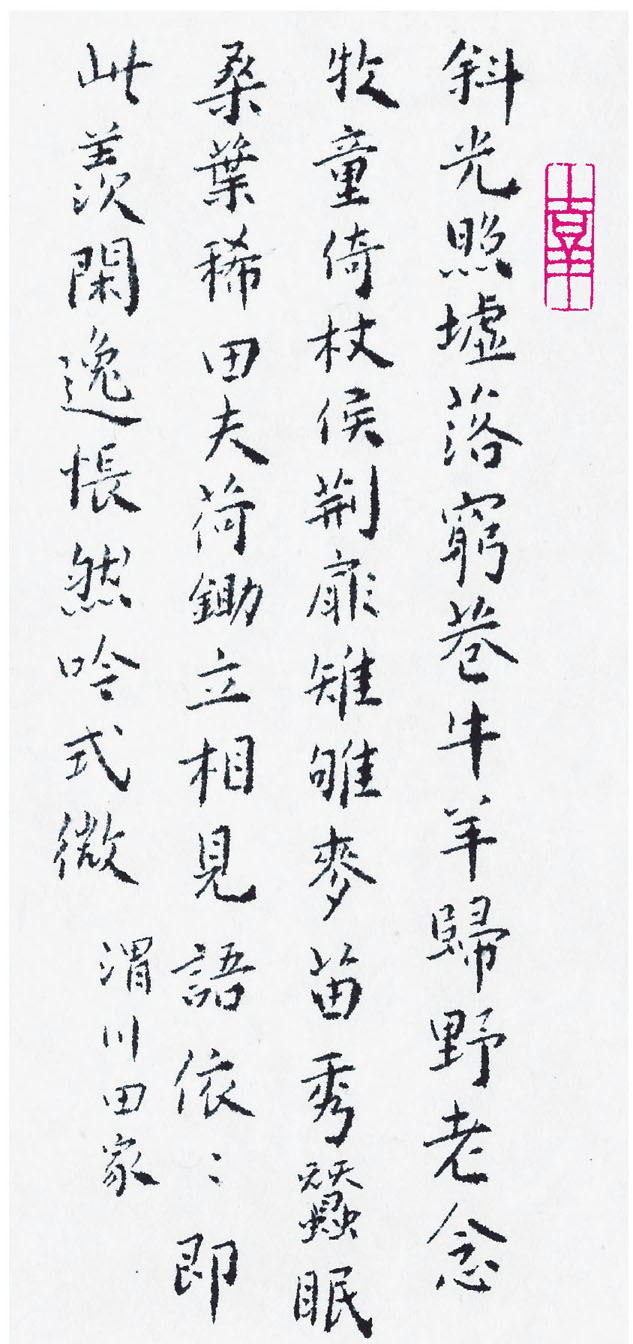 斜光照墟落窮巷牛羊歸野老念
牧童倚杖侯荆扉雉雊麥苗秀蠶眠
桑葉稀田夫荷鋤立相見語依〻即
此羨閑逸悵然吟式微
渭川田家